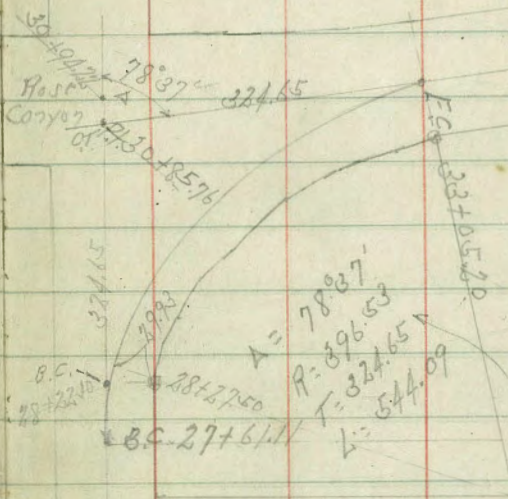 Rose
Canyon
78°37'
Δ
324.65
P.I. 30+85.76
E.C.
33+05.20
324.65
29.93
B.C.
28+27.50
B.C. 27+61.11
Δ = 78°37'
R = 396.53
T = 324.65
L = 544.09